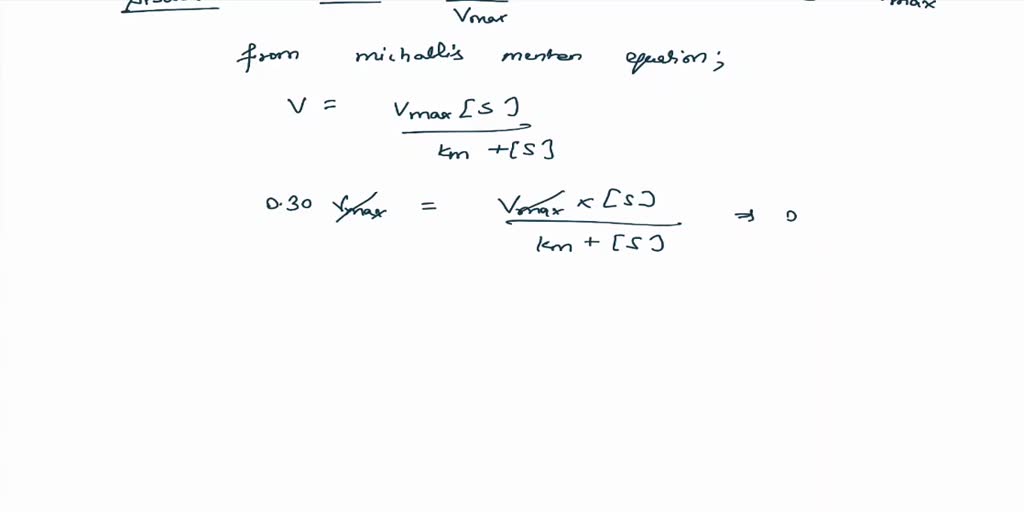 Vmax
max
from michallis menten equation;
V = Vmax [S] / km + [S]
0.30 Vmax = Vmax × [S] / km + [S] ⇒ 0